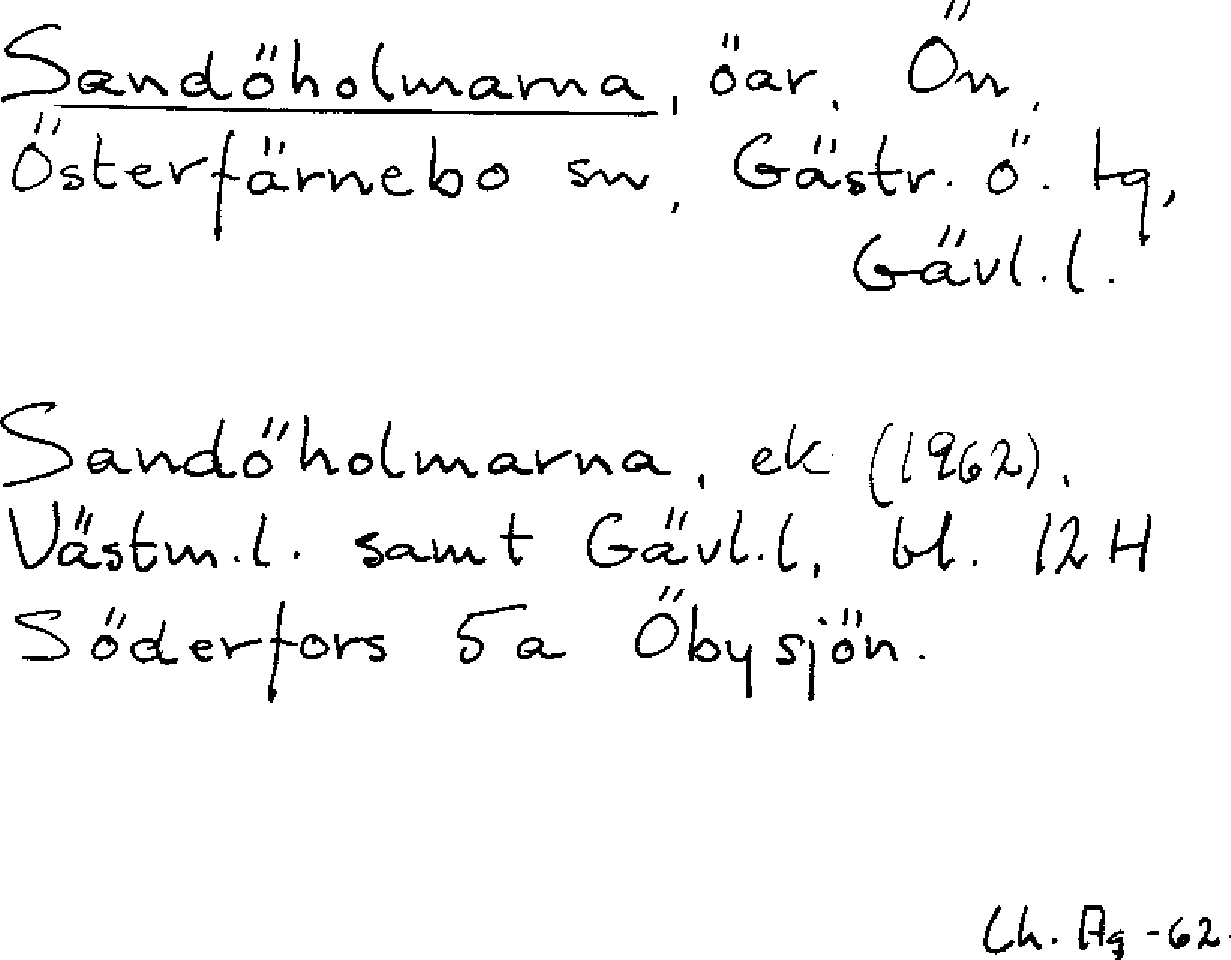 Sandöholmarna, öar, Ön,
Österfärnebo sn, Gästr. ö. tg,
Gävl.l.
Sandöholmarna, ek (1962),
Västm.l. samt Gävl.l, bl. 12 H
Söderfors 5a Öbysjön.
Ch. Ag -62.